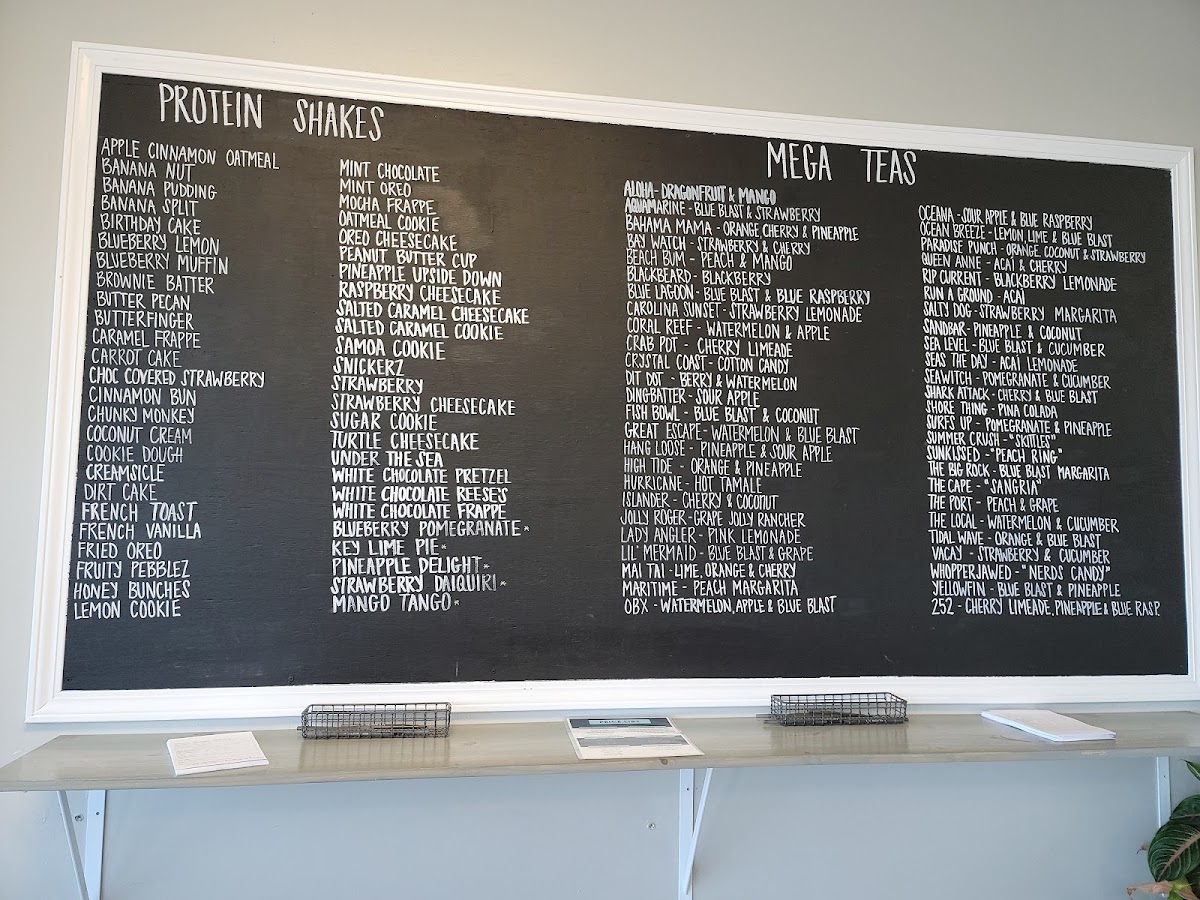 PROTEIN SHAKES
APPLE CINNAMON OATMEAL
BANANA NUT
BANANA PUDDING
BANANA SPLIT
BIRTHDAY CAKE
BLUEBERRY LEMON
BLUEBERRY MUFFIN
BROWNIE BATTER
BUTTER PECAN
BUTTERFINGER
CARAMEL FRAPPE
CARROT CAKE
CHOC COVERED STRAWBERRY
CINNAMON BUN
CHUNKY MONKEY
COCONUT CREAM
COOKIE DOUGH
CREAMSICLE
DIRT CAKE
FRENCH TOAST
FRENCH VANILLA
FRIED OREO
FRUITY PEBBLEZ
HONEY BUNCHES
LEMON COOKIE
MINT CHOCOLATE
MINT OREO
MOCHA FRAPPE
OATMEAL COOKIE
OREO CHEESECAKE
PEANUT BUTTER CUP
PINEAPPLE UPSIDE DOWN
RASPBERRY CHEESECAKE
SALTED CARAMEL CHEESECAKE
SALTED CARAMEL COOKIE
SAMOA COOKIE
SNICKERZ
STRAWBERRY
STRAWBERRY CHEESECAKE
SUGAR COOKIE
TURTLE CHEESECAKE
UNDER THE SEA
WHITE CHOCOLATE PRETZEL
WHITE CHOCOLATE REESE'S
WHITE CHOCOLATE FRAPPE
BLUEBERRY POMEGRANATE*
KEY LIME PIE*
PINEAPPLE DELIGHT*
STRAWBERRY DAIQUIRI*
MANGO TANGO*
MEGA TEAS
ALOHA- DRAGONFRUIT & MANGO
AQUAMARINE - BLUE BLAST & STRAWBERRY
BAHAMA MAMA - ORANGE, CHERRY & PINEAPPLE
BAY WATCH - STRAWBERRY & CHERRY
BEACH BUM - PEACH & MANGO
BLACKBEARD - BLACKBERRY
BLUE LAGOON - BLUE BLAST & BLUE RASPBERRY
CAROLINA SUNSET - STRAWBERRY LEMONADE
CORAL REEF - WATERMELON & APPLE
CRAB POT - CHERRY LIMEADE
CRYSTAL COAST - COTTON CANDY
DIT DOT - BERRY & WATERMELON
DINGBATTER - SOUR APPLE
FISH BOWL - BLUE BLAST & COCONUT
GREAT ESCAPE - WATERMELON & BLUE BLAST
HANG LOOSE - PINEAPPLE & SOUR APPLE
HIGH TIDE - ORANGE & PINEAPPLE
HURRICANE - HOT TAMALE
ISLANDER - CHERRY & COCONUT
JOLLY ROGER - GRAPE JOLLY RANCHER
LADY ANGLER - PINK LEMONADE
LIL' MERMAID - BLUE BLAST & GRAPE
MAI TAI - LIME, ORANGE & CHERRY
MARITIME - PEACH MARGARITA
OBX - WATERMELON, APPLE & BLUE BLAST
OCEANA - SOUR APPLE & BLUE RASPBERRY
OCEAN BREEZE - LEMON, LIME & BLUE BLAST
PARADISE PUNCH - ORANGE, COCONUT & STRAWBERRY
QUEEN ANNE - ACAI & CHERRY
RIP CURRENT - BLACKBERRY LEMONADE
RUN A GROUND - ACAI
SALTY DOG - STRAWBERRY MARGARITA
SANDBAR - PINEAPPLE & COCONUT
SEA LEVEL - BLUE BLAST & CUCUMBER
SEAS THE DAY - ACAI LEMONADE
SEAWITCH - POMEGRANATE & CUCUMBER
SHARK ATTACK - CHERRY & BLUE BLAST
SHORE THING - PINA COLADA
SURFS UP - POMEGRANATE & PINEAPPLE
SUMMER CRUSH - "SKITTLES"
SUNKISSED - "PEACH RING"
THE BIG ROCK - BLUE BLAST MARGARITA
THE CAPE - "SANGRIA"
THE PORT - PEACH & GRAPE
THE LOCAL - WATERMELON & CUCUMBER
TIDAL WAVE - ORANGE & BLUE BLAST
VACAY - STRAWBERRY & CUCUMBER
WHOPPERJAWED - "NERDS CANDY"
YELLOWFIN - BLUE BLAST & PINEAPPLE
252 - CHERRY LIMEADE, PINEAPPLE & BLUE RASP.
PRICE LIST